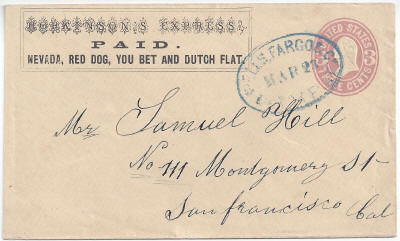 HOPKINSON'S EXPRESS,
PAID.
NEVADA, RED DOG, YOU BET AND DUTCH FLAT.
WELLS, FARGO & CO
MAR 2
UNITED STATES
3 3
THREE CENTS
Mr Samuel Hill
No 111 Montgomery St
San francisco Cal